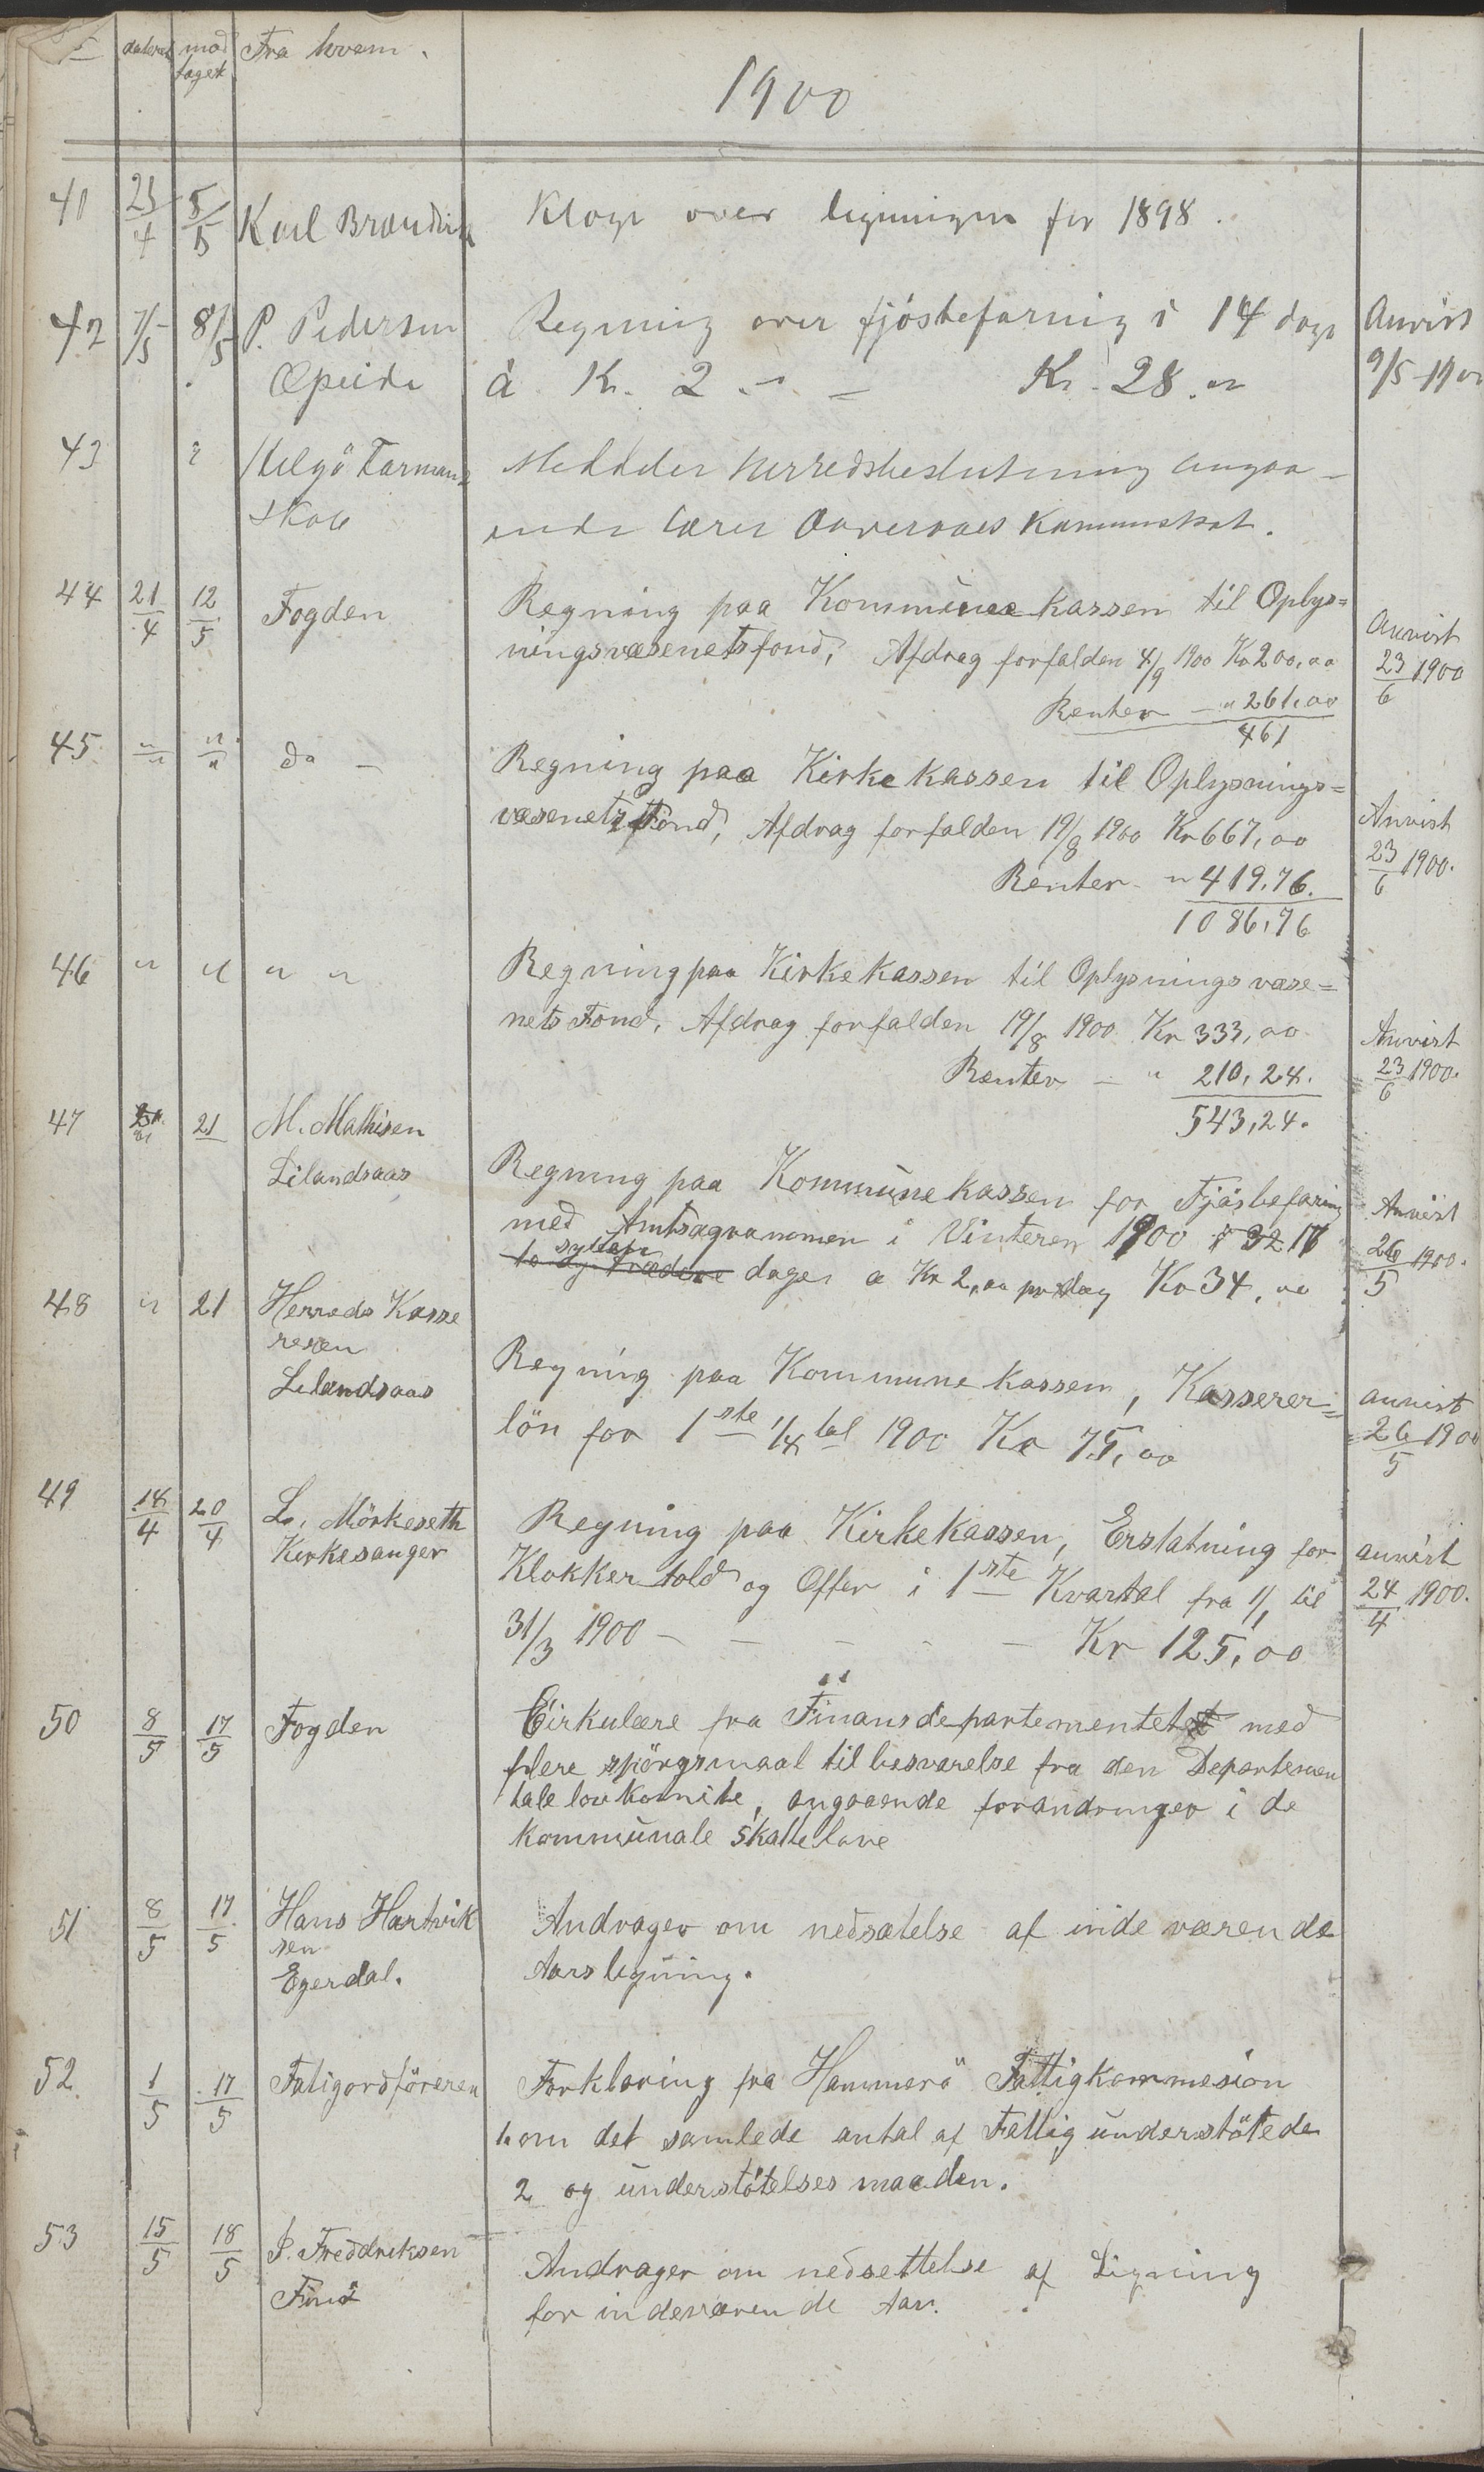 dateret modtaget Fra hvem.
1900
41 23/4 5/5 Karl Klage over ligningen for 1898.
42 7/5 8/5 P. Pedersen Regning over fjøsbefaring i 14 dage Anvist
Øpeide à Kr. 2.- - Kr. 28.00 9/5-1900
43 Meddeler Herredsbeslutning angaa-
skole ende lærer Kommuneskat.
44 21/4 12/5 Fogden Regning paa Kommunekassen til Oplys=
ningsvæsenetsfond, Afdrag forfalden 4/9 1900 Kr 200,00 Anvist
Renter - " 261,00 23/6 1900
461
45 " " do - Regning paa Kirkekassen til Oplysnings=
væsenets Fond, Afdrag forfalden 19/8 1900 Kr 667,00 Anvist
Renter - " 419,76. 23/6 1900.
1086,76
46 " " " " Regning paa Kirkekassen til Oplysningsvæse=
nets Fond, Afdrag forfalden 19/8 1900 Kr 333,00 Anvist
Renter - " 210,24. 23/6 1900.
543,24.
47 21 M. Mathisen
Lilandsaas Regning paa Kommunekassen for Fjøsbefaring Anvist
med Amtsagronomen i Vinteren 1900 17 26/5 1900.
sytten
dage a Kr 2,00 pr dag Kr 34,00
48 " 21 Herreds Kasse
reren
Lilandsaas Regning paa Kommunekassen, Kasserer= anvist
lön for 1ste 1/4tal 1900 Kr 75,00 26/5 1900
49 14/4 20/4 L. Mörkeseth Regning paa Kirkekassen, Erstatning for anvist
Kirkesanger Klokkertold og Offer i 1ste Kvartal fra 1/1 til 24/4 1900.
31/3 1900 - - - - - Kr 125,00
50 8/5 17/5 Fogden Cirkulære fra Finansdepartementet med
flere spörgsmaal til besvarelse fra den Departemen
tale lovkomite, angaaende forandringer i de
kommunale Skattelove
51 8/5 17/5 Hans Hartvik Andrager om nedsatelse af inde værende
sen Aars ligning.
Egerdal.
52. 1/5 17/5 Fatigordföreren Forklaring fra Hammerö Fattigkommesion
1. om det samlede antal af Fattig understötede
2 og understötelses maaden.
53 15/5 18/5 P. Freddriksen Andrager om nedsettelse af Ligning
for indeværende Aar.